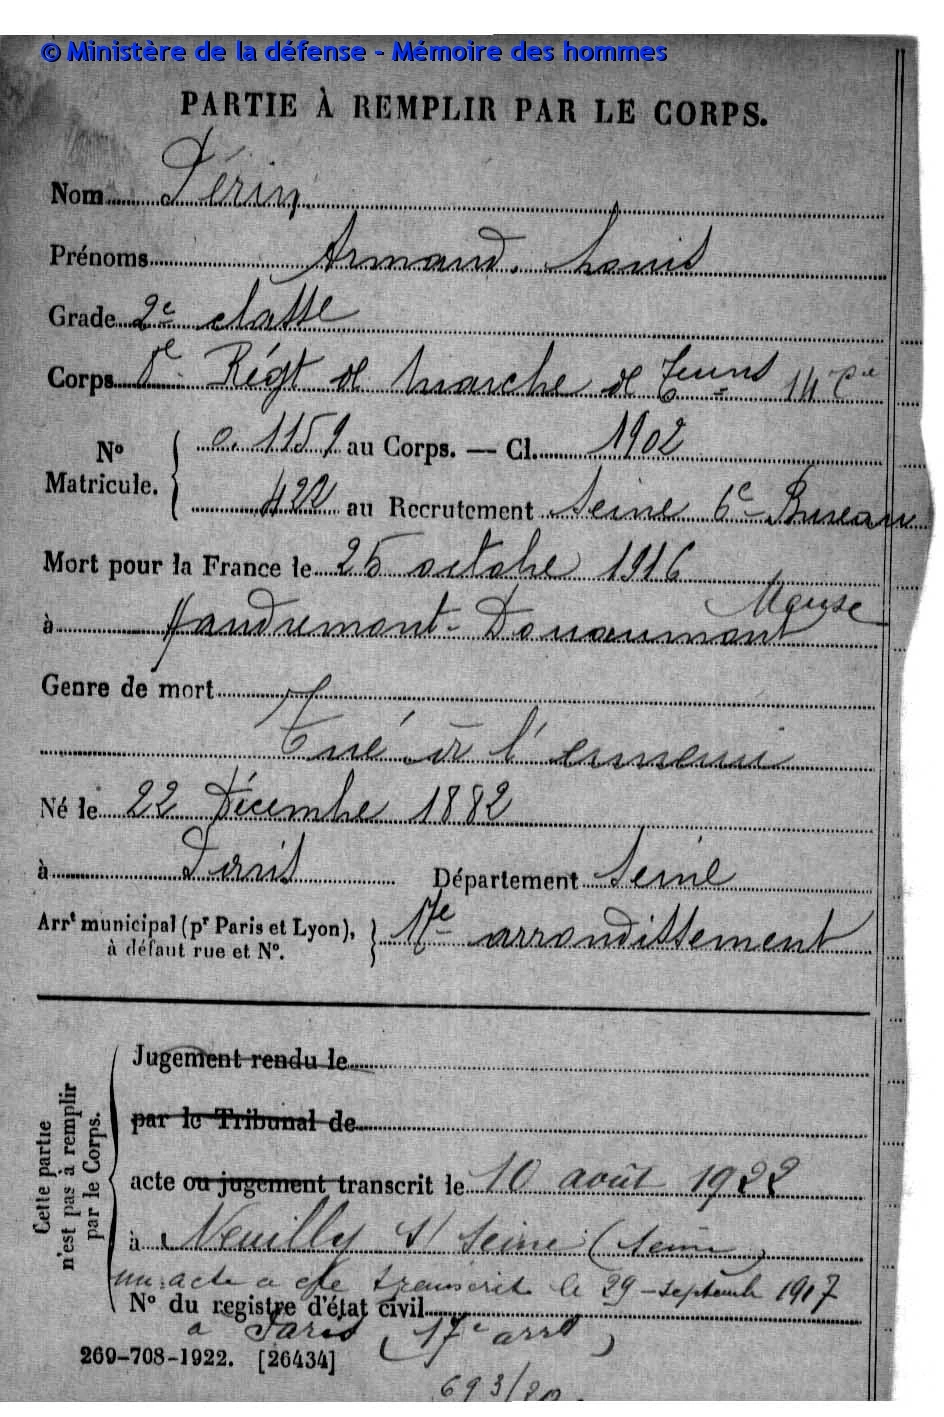 © Ministère de la défense - Mémoire des hommes
PARTIE À REMPLIR PAR LE CORPS.
Nom Périn
Prénoms Armand, Louis
Grade 2e classe
Corps Régt de marche de 14 Cie
No Matricule. 1159 au Corps. — Cl. 1902
422 au Recrutement Seine 6e Bureau
Mort pour la France le 25 octobre 1916
à Haudremont - Douaumont Meuse
Genre de mort
Tué à l'ennemi
Né le 22 Décembre 1882
à Paris Département Seine
Arrt municipal (pr Paris et Lyon), à défaut rue et No. 17e arrondissement
Cette partie n'est pas à remplir par le Corps.
Jugement rendu le
par le Tribunal de
acte ou jugement transcrit le 10 août 1922
à Neuilly s/ Seine (Seine)
un acte a été transcrit le 29 - septemb 1917
No du registre d'état civil
à Paris (17e arrt)
269-708-1922. [26434]
693/20